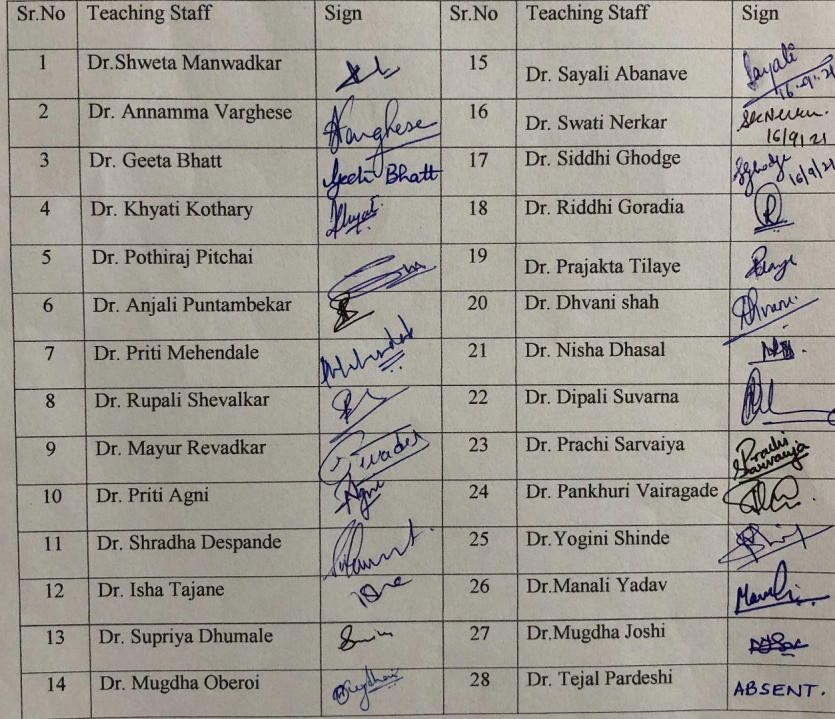 Sr.No Teaching Staff Sign Sr.No Teaching Staff Sign
1 Dr.Shweta Manwadkar 15 Dr. Sayali Abanave Sayali
16.9.21
2 Dr. Annamma Varghese Varghese 16 Dr. Swati Nerkar
16/9/21
3 Dr. Geeta Bhatt Geeta Bhatt 17 Dr. Siddhi Ghodge SGhodge 16/9/21
4 Dr. Khyati Kothary Khyati 18 Dr. Riddhi Goradia R
5 Dr. Pothiraj Pitchai 19 Dr. Prajakta Tilaye
6 Dr. Anjali Puntambekar 20 Dr. Dhvani shah Dhvani
7 Dr. Priti Mehendale 21 Dr. Nisha Dhasal
8 Dr. Rupali Shevalkar 22 Dr. Dipali Suvarna
9 Dr. Mayur Revadkar 23 Dr. Prachi Sarvaiya Prachi
Sarvaiya
10 Dr. Priti Agni Agni 24 Dr. Pankhuri Vairagade
11 Dr. Shradha Despande 25 Dr.Yogini Shinde
12 Dr. Isha Tajane Isha 26 Dr.Manali Yadav
13 Dr. Supriya Dhumale 27 Dr.Mugdha Joshi
14 Dr. Mugdha Oberoi 28 Dr. Tejal Pardeshi ABSENT.